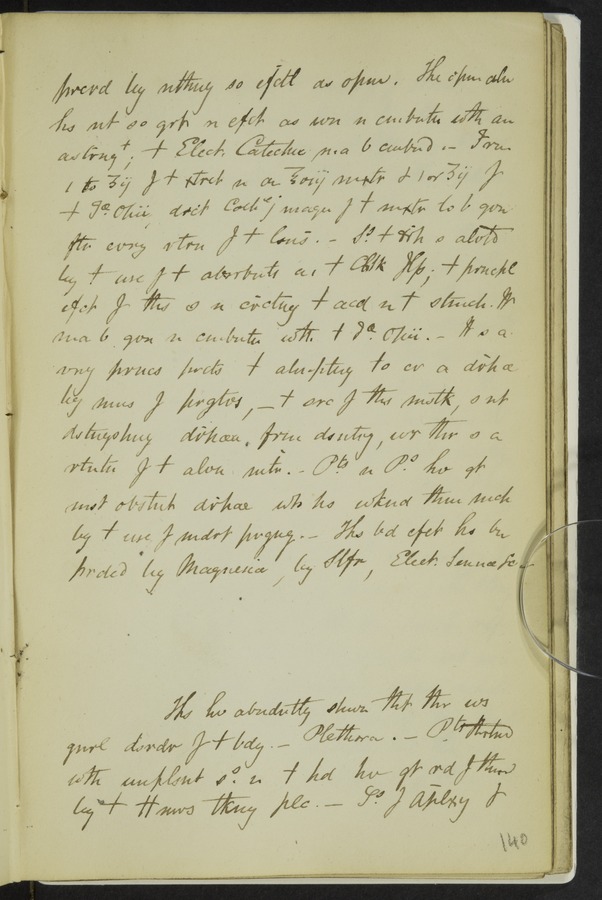 prevd by nthng so efctl as opm. The opm aln
hs nt so grt n efct as wn n cmbntn wth an
astrngt; + Elect. Catechu ma b cmbnd. - From
1 to ʒij J + xtrct n or ℥oiij mxtr & 1 or ʒij J
+ Ta Opii, dsct Cochj magn J + mxtr to b gvn
ftr evry rtrn J + lsns. - So + drh s alvtd
by + use J + absrbnts as + Chlk ; + prncpl
efct J ths s n crctng + acd n + stmch. It
ma b gvn n cmbntn wth + Ta Opii. - It s a
vry prncs prcts + atmptng to cr a drhœ
by mns J prgtvs, - + src J ths mstk, s nt
dstngshng drhœa, frm dsntry, wr thr s a
rtntn J + alvn mtr. - Pts n Ps hv gt
mst obstnt drhœ wh hs wknd thm mch
by + use J mdrt prgng. - Ths bd efct hs bn
prdcd by Magnesia, by Slfr, Elect. Sennœ &c -
Ths hv abndntly shwn tht thr ws
gnrl dsrdr J + bdy. - Plethora. - Pts
wth unplsnt so n + hd hv gt rd J thm
by + Hmrs tkng plc. - So J Aplxy J
140